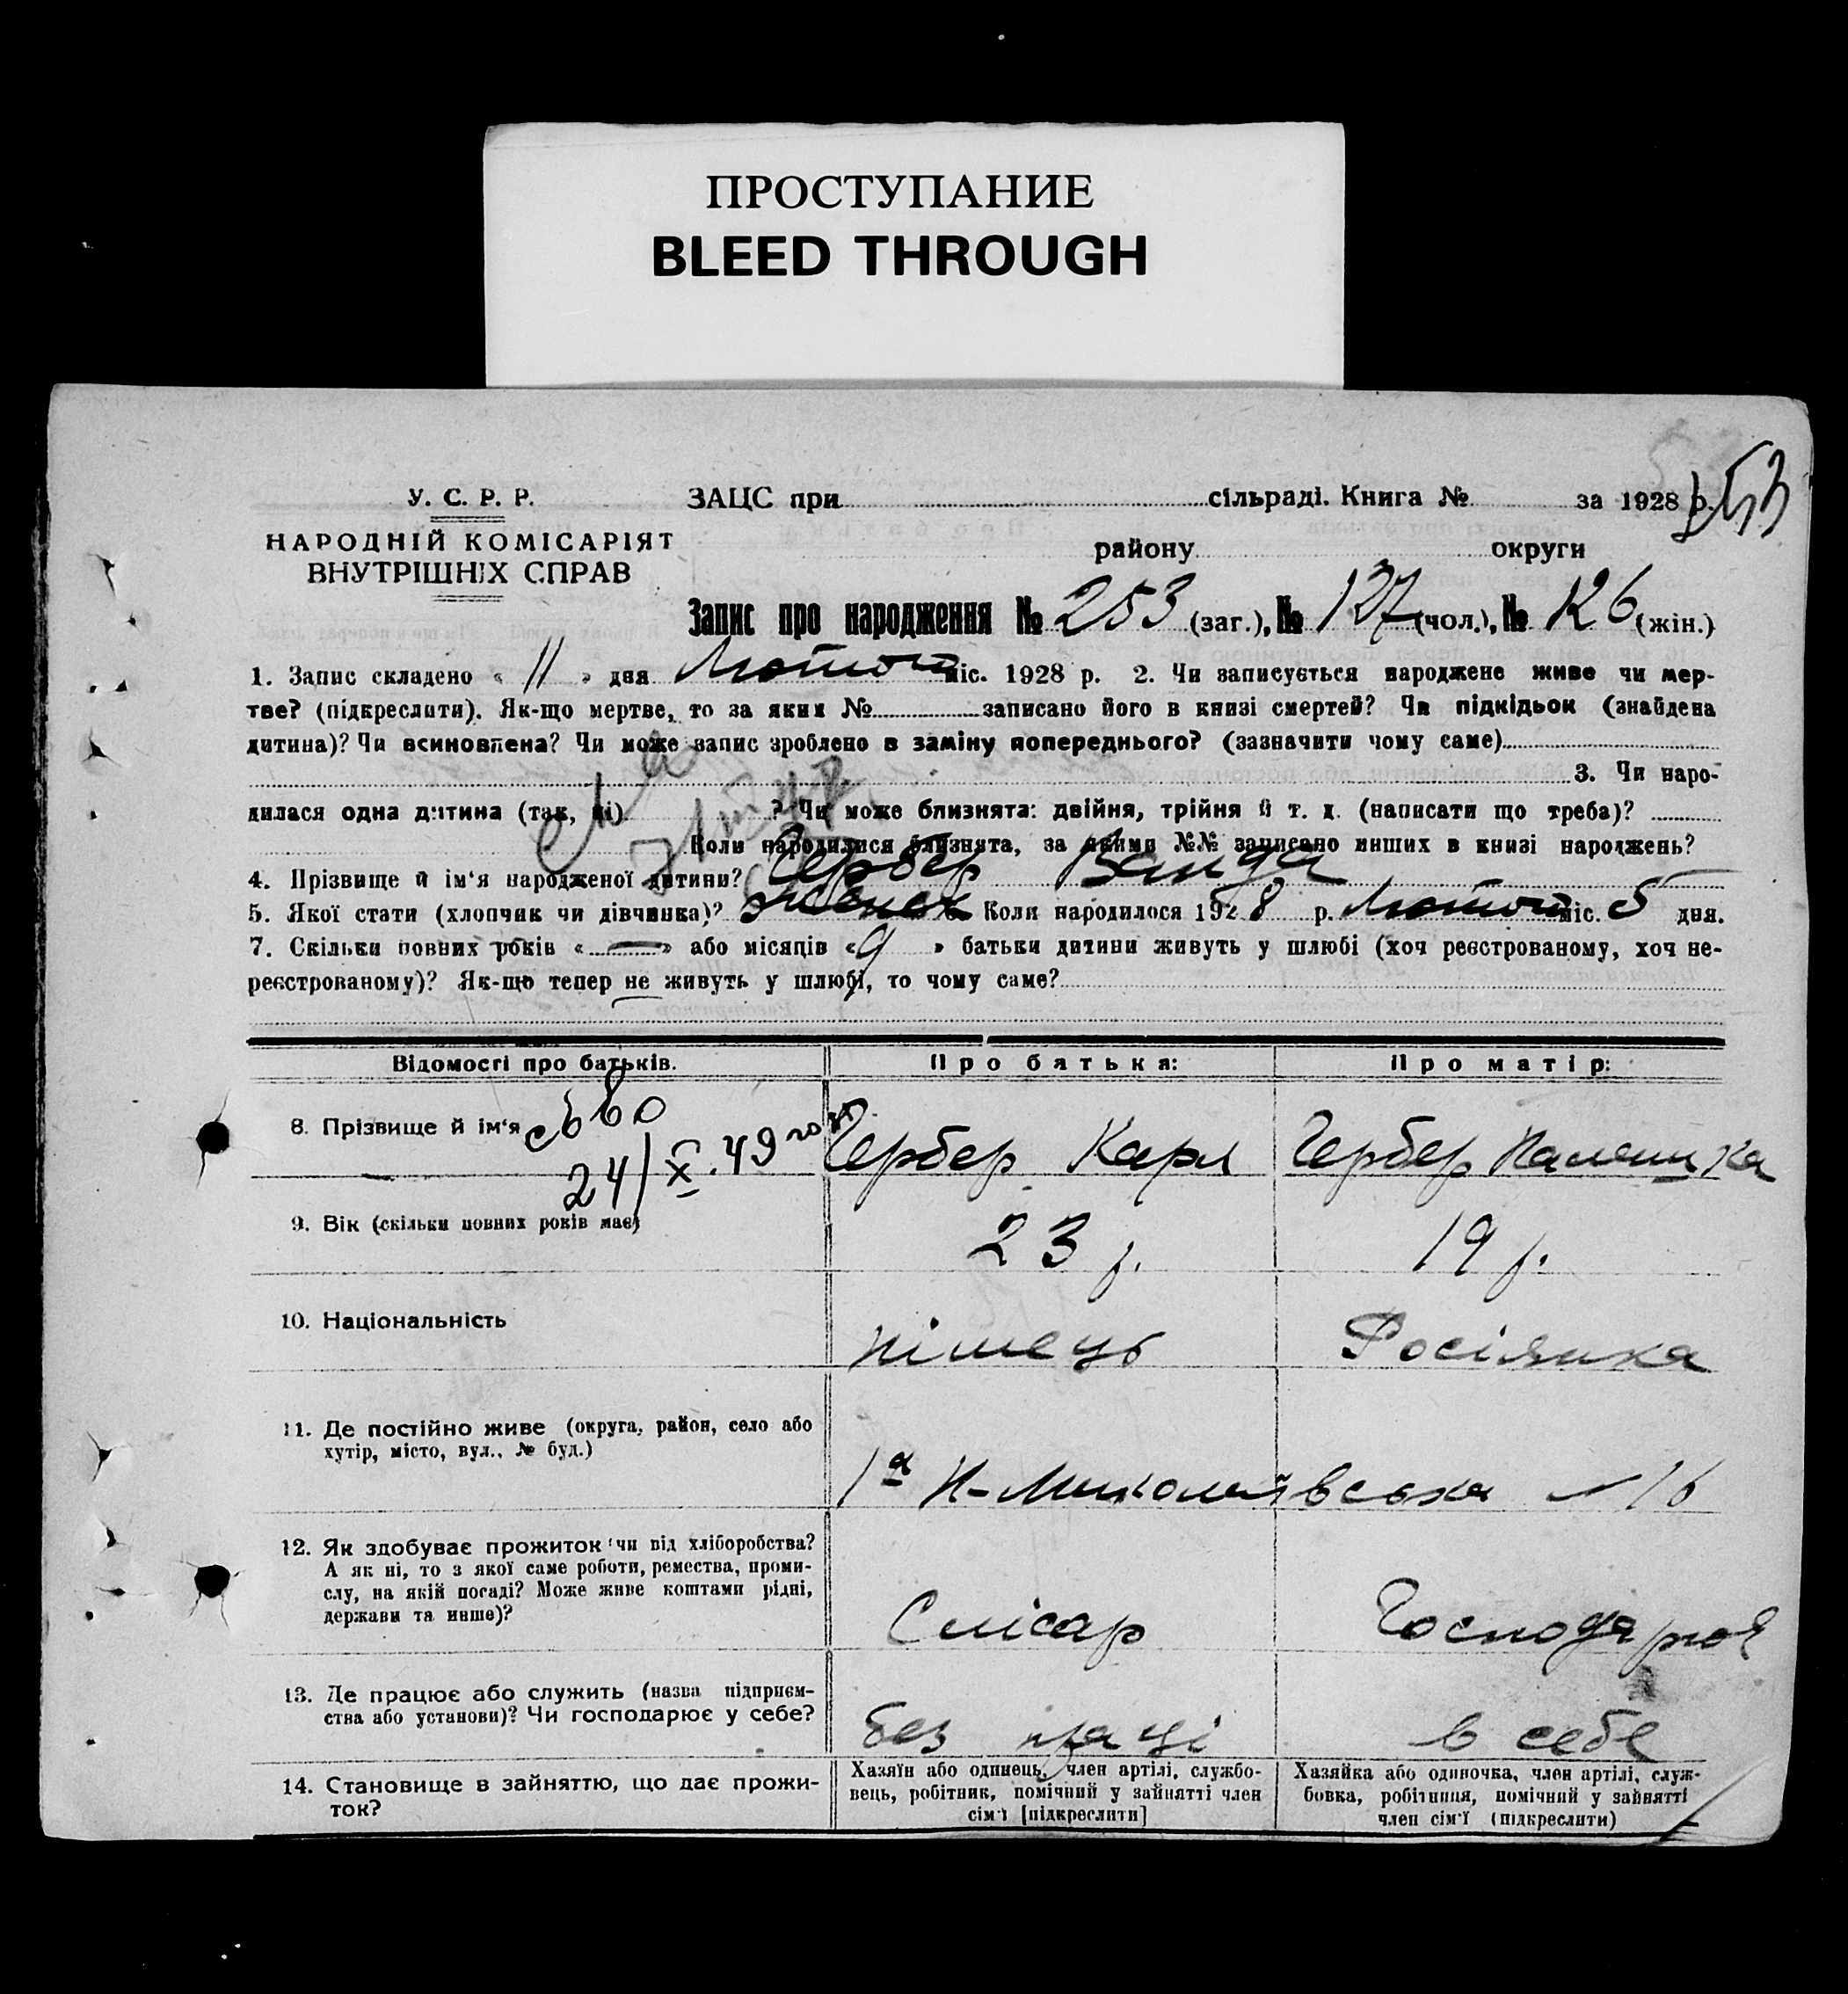 ПРОСТУПАНИЕ
BLEED THROUGH
У. С. Р. Р.
НАРОДНІЙ КОМІСАРІЯТ
ВНУТРІШНІХ СПРАВ
ЗАЦС при сільраді. Книга № за 1928 р. 253
району округи
Запис про народження № 253 (заг.), № 127 (чол.), № 126 (жін.)
1. Запис складено « 11 » дня Лютого міс. 1928 р. 2. Чи записується народжене живе чи мер-
тве? (підкреслити). Як-що мертве, то за яким № записано його в книзі смертей? Чи підкідьок (знайдена
дитина)? Чи всиновлена? Чи може запис зроблено в заміну попереднього? (зазначити чому саме)
3. Чи наро-
дилася одна дитина (так, ні). ? Чи може близнята: двійня, трійня й т. д. (написати що треба)?
Коли народилися близнята, за якими №№ записано инших в книзі народжень?
4. Прізвище й ім‘я народженої дитини? Гербер Ванда
5. Якої стати (хлопчик чи дівчинка)? Коли народилося 1928 р. Лютого міс. 5 дня.
7. Скільки повних років « — » або місяців « 9 » батьки дитини живуть у шлюбі (хоч реєстрованому, хоч не-
реєстрованому)? Як-що тепер не живуть у шлюбі, то чому саме?
Відомості про батьків. Про батька: Про матір:
8. Прізвище й ім‘я Гербер Карл Гербер
24/X.49
9. Вік (скільки повних років має) 23 р. 19 р.
10. Національність німець Росіянка
11. Де постійно живе (округа, район, село або
хутір, місто, вул., № буд.)
1а Н-Миколаївська 16
12. Як здобуває прожиток чи від хліборобства?
А як ні, то з якої саме роботи, ремества, проми-
слу, на якій посаді? Може живе коштами рідні,
держави та инше)?
Слісар Господарює
13. Де працює або служить (назва підприєм-
ства або установи)? Чи господарює у себе?
без праці в себе
14. Становище в зайняттю, що дає прожи-
ток?
Хазяїн або одинець, член артілі, службо-
вець, робітник, помічний у зайнятті член
сім‘ї [підкреслити]
Хазяйка або одиночка, член артілі, служ-
бовка, робітниця, помічний у зайнятті
член сім‘ї (підкреслити)